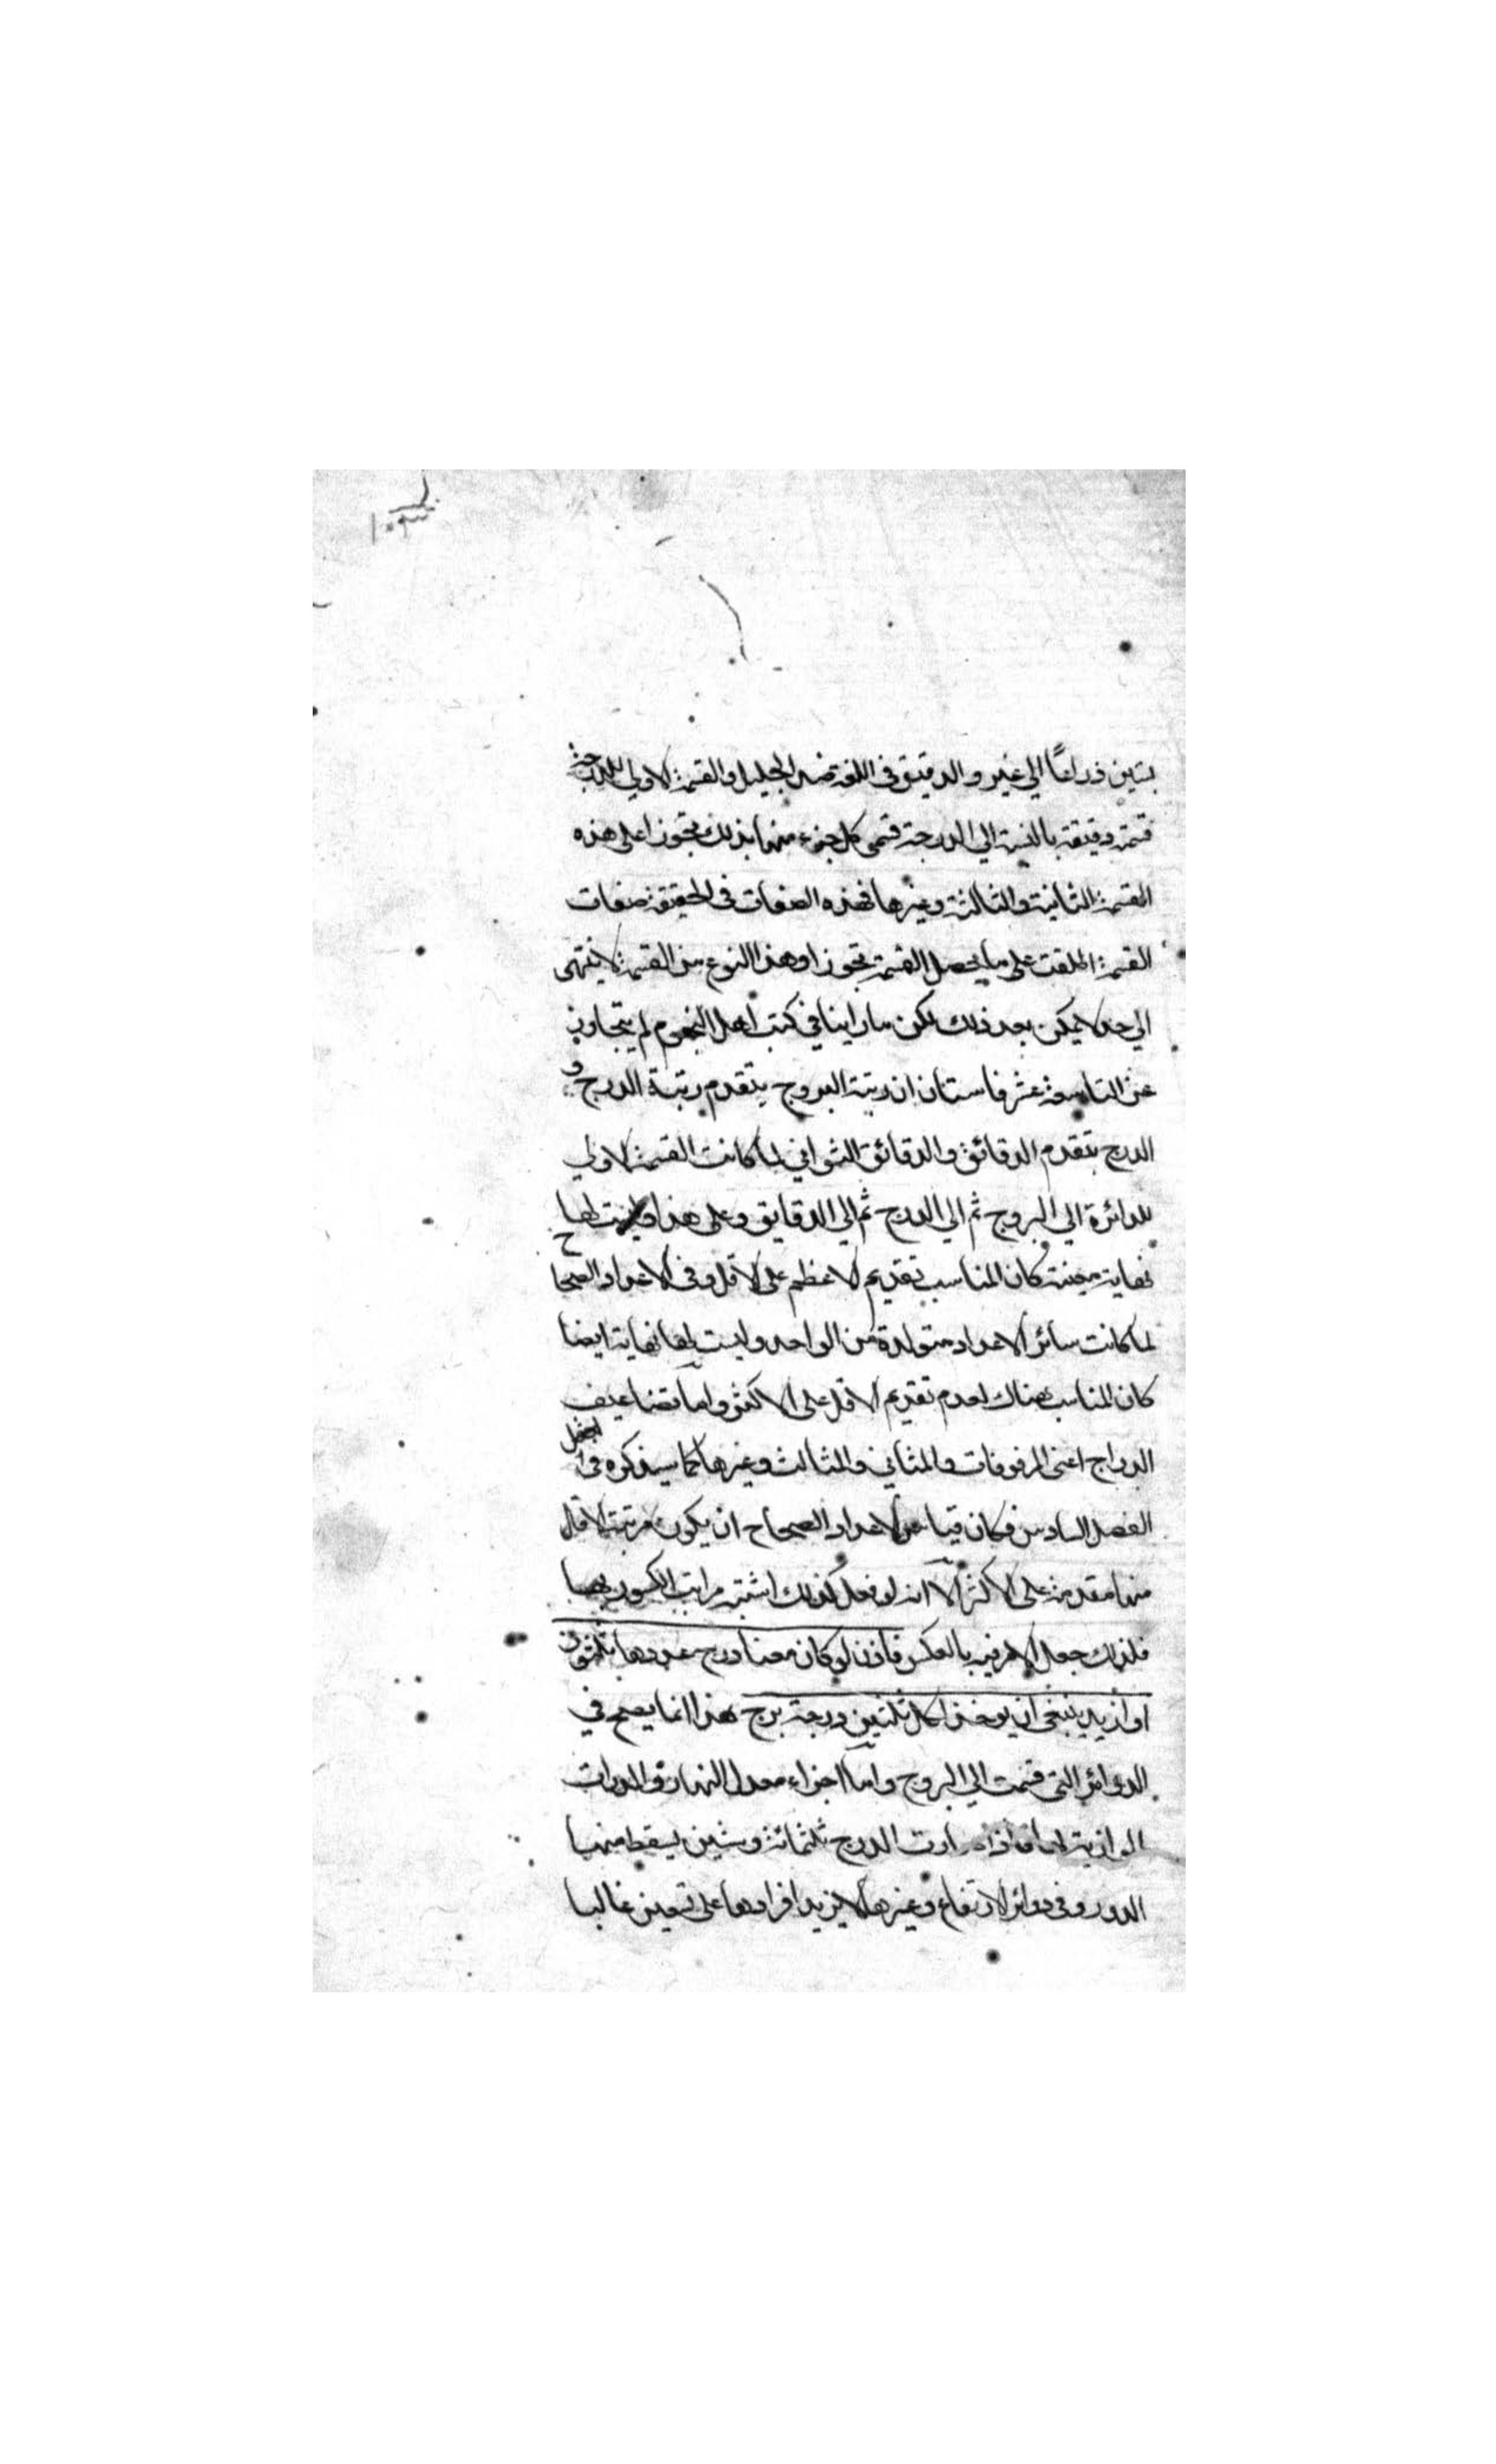 بستين ذراعًا الي غير والدقيق في اللغة ضد الجليل والقسمة الاولي للدرجة
قسمة دقيقة بالنسبة الي الدرجة فسمي كل جزء منها بذلك تجوزا على هذه
القسمة الثانية والثالثة وغيرها فهذه الصفات في الحقيقة صفات
القسمة اطلقت على ما يحصل القسمة تجوزا وهذا النوع من القسمة لا ينتهى
الي حد لا يمكن بعد ذلك لكن ما راينا في كتب اهل النجوم لم يتجاوز
عن التاسعة عشر فاستبان ان رتبة البروج يتقدم رتبة الدرج و
الدرج يتقدم الدقائق والدقائق الثواني لما كانت القسمة الاولي
للدائرة الي البروج ثم الي الدرج ثم الي الدقايق وعلى هذا وليست لها
نهاية معينة كان المناسب تقديم الاعظم على الاقل وفي الاعداد الصحا ح
لما كانت سائر الاعداد متولدة من الواحد وليست لها نهاية ايضا
كان المناسب هناك تقديم الاقل على الاكثر واما تضاعيف
الدراج اعني المرفوعات والمثاني والمثالث وغيرها كما سيذكره في
الفصل السادس فكان قياس الاعداد الصحاح ان يكون مرتبة الاقل
منها مقدمة على الاكثر الا انه لو فعل كذلك اشتبه مراتب الكسور بها
فلذلك جعل الامر فيه بالعكس فاذن لو كان معنا درج عددها ثلثون
او ازيد ينبغي ان يوخذ لكل ثلثين درجة برج هذا انما يصح في
الدوائر التي قسمت الي البروج واما اجزاء معدل النهار والمدارات
الموازية لها فاذا زادت الدرج ثلثمائة وستين يسقط منها
الدور وفي دوائر الارتفاع وغيرها لا يزيد افرادها على تسعين غالبا